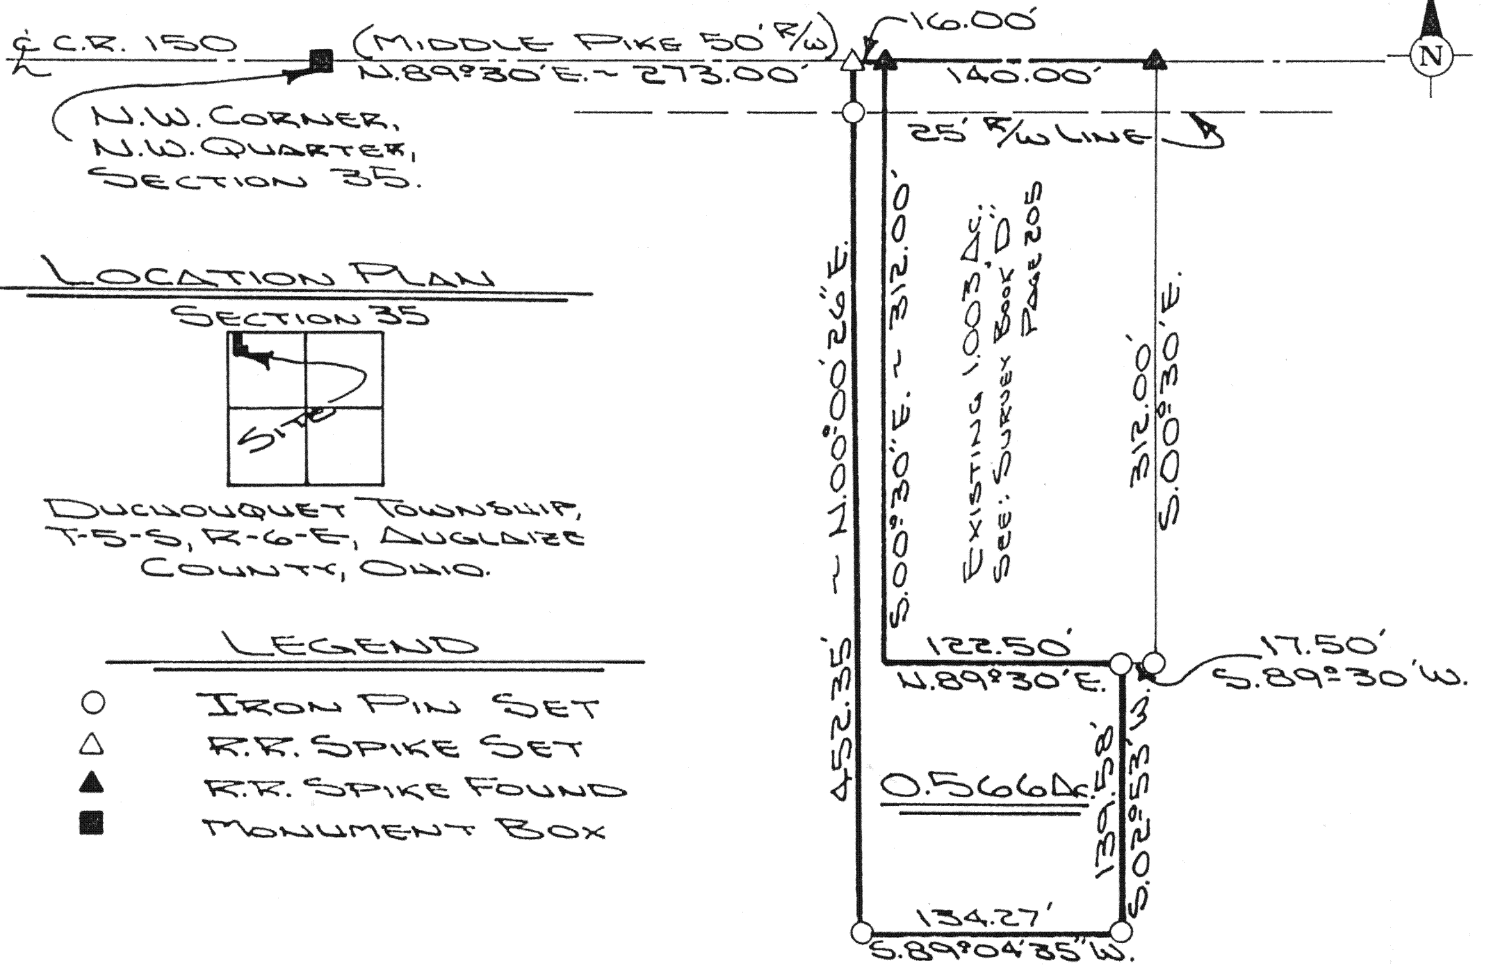 ℄ C.R. 150
(MIDDLE PIKE 50' R/W)
N.89°30'E. ~ 273.00'
16.00'
140.00'
N
N.W. CORNER,
N.W. QUARTER,
SECTION 35.
25' R/W LINE
LOCATION PLAN
SECTION 35
SITE
DUCHOUQUET TOWNSHIP,
T-5-S, R-6-E, AUGLAIZE
COUNTY, OHIO.
LEGEND
IRON PIN SET
R.R. SPIKE SET
R.R. SPIKE FOUND
MONUMENT BOX
452.35' ~ N.00°00'26"E.
S.00°30"E. ~ 312.00'
EXISTING 1.003 AC.
SEE: SURVEY BOOK "D"
PAGE 205
312.00'
S.00°30'E.
122.50'
N.89°30'E.
17.50'
S.89°30'W.
0.566 AC.
139.58'
S.02°53'W.
134.27'
S.89°04'35"W.